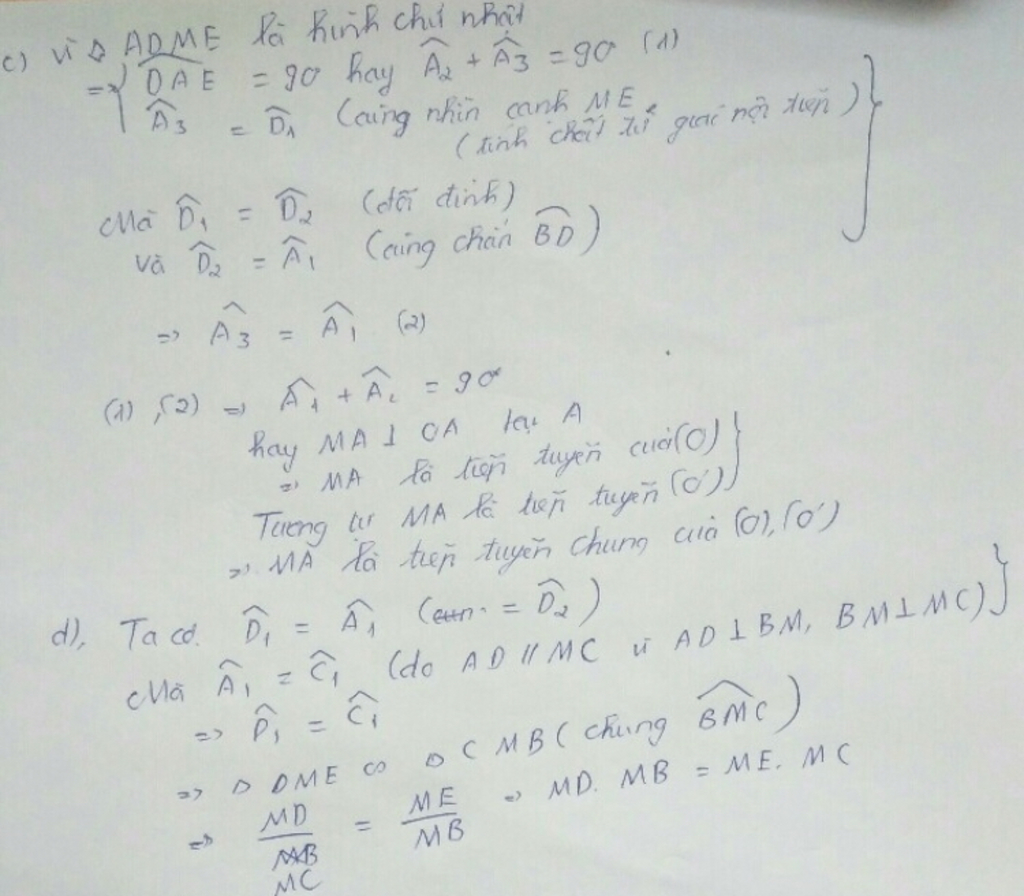 c) Vì ◊ ADME là hình chữ nhật
=> { \widehat{DAE} = 90 hay \widehat{A}_2 + \widehat{A}_3 = 90 (1)
\widehat{A}_3 = \widehat{D}_1 (cùng nhìn cạnh ME
(tính chất tứ giác nội tiếp) }
Mà \widehat{D}_1 = \widehat{D}_2 (đối đỉnh)
và \widehat{D}_2 = \widehat{A}_1 (cùng chắn \widehat{BD})
=> \widehat{A}_3 = \widehat{A}_1 (2)
(1), (2) => \widehat{A}_1 + \widehat{A}_2 = 90°
hay MA ⊥ OA tại A
=> MA là tiếp tuyến của (O) }
Tương tự MA là tiếp tuyến (O') }
=> MA là tiếp tuyến chung của (O), (O')
d), Ta có. \widehat{D}_1 = \widehat{A}_1 (= \widehat{D}_2) }
Mà \widehat{A}_1 = \widehat{C}_1 (do AD // MC vì AD ⊥ BM, BM ⊥ MC) }
=> \widehat{D}_1 = \widehat{C}_1
=> Δ DME ∽ Δ CMB (chung \widehat{BMC})
=> \frac{MD}{MC} = \frac{ME}{MB} => MD. MB = ME. MC